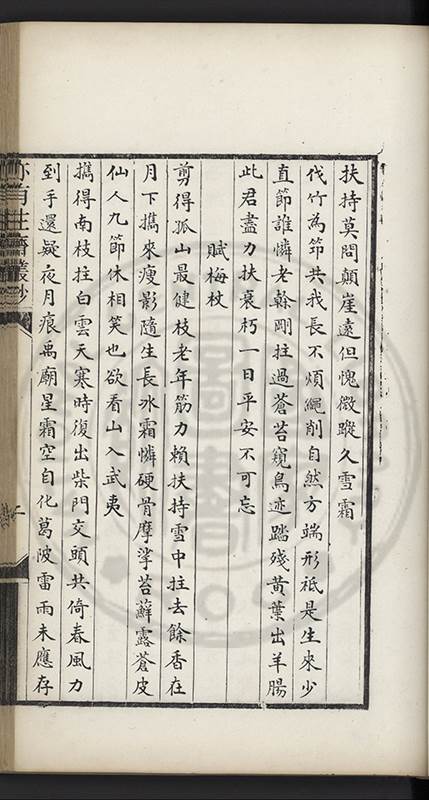 扶持莫問顛崖遠但愧微蹤久雪霜
伐竹為筇共我長不煩繩削自然方端形祇是生來少
直節誰憐老榦剛拄過蒼苔窺鳥迹踏殘黃葉出羊腸
此君盡力扶衰朽一日平安不可忘
賦梅杖
剪得孤山最健枝老年筋力賴扶持雪中拄去餘香在
月下攜來瘦影隨生長冰霜憐硬骨摩挲苔蘚露蒼皮
仙人九節休相笑也欲看山入武夷
攜得南枝拄白雲天寒時復出柴門交頭共倚春風力
到手還疑夜月痕禹廟星霜空自化葛陂雷雨未應存
亦有生齋叢鈔